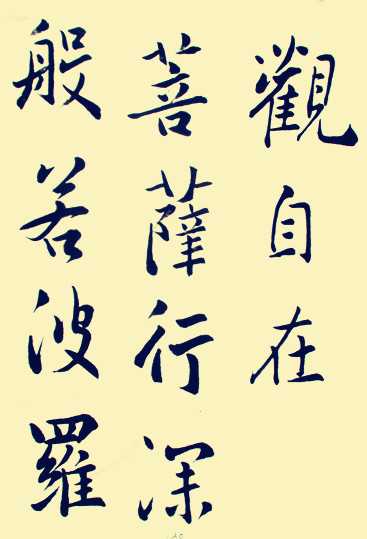 觀自在
菩薩行深
般若波羅